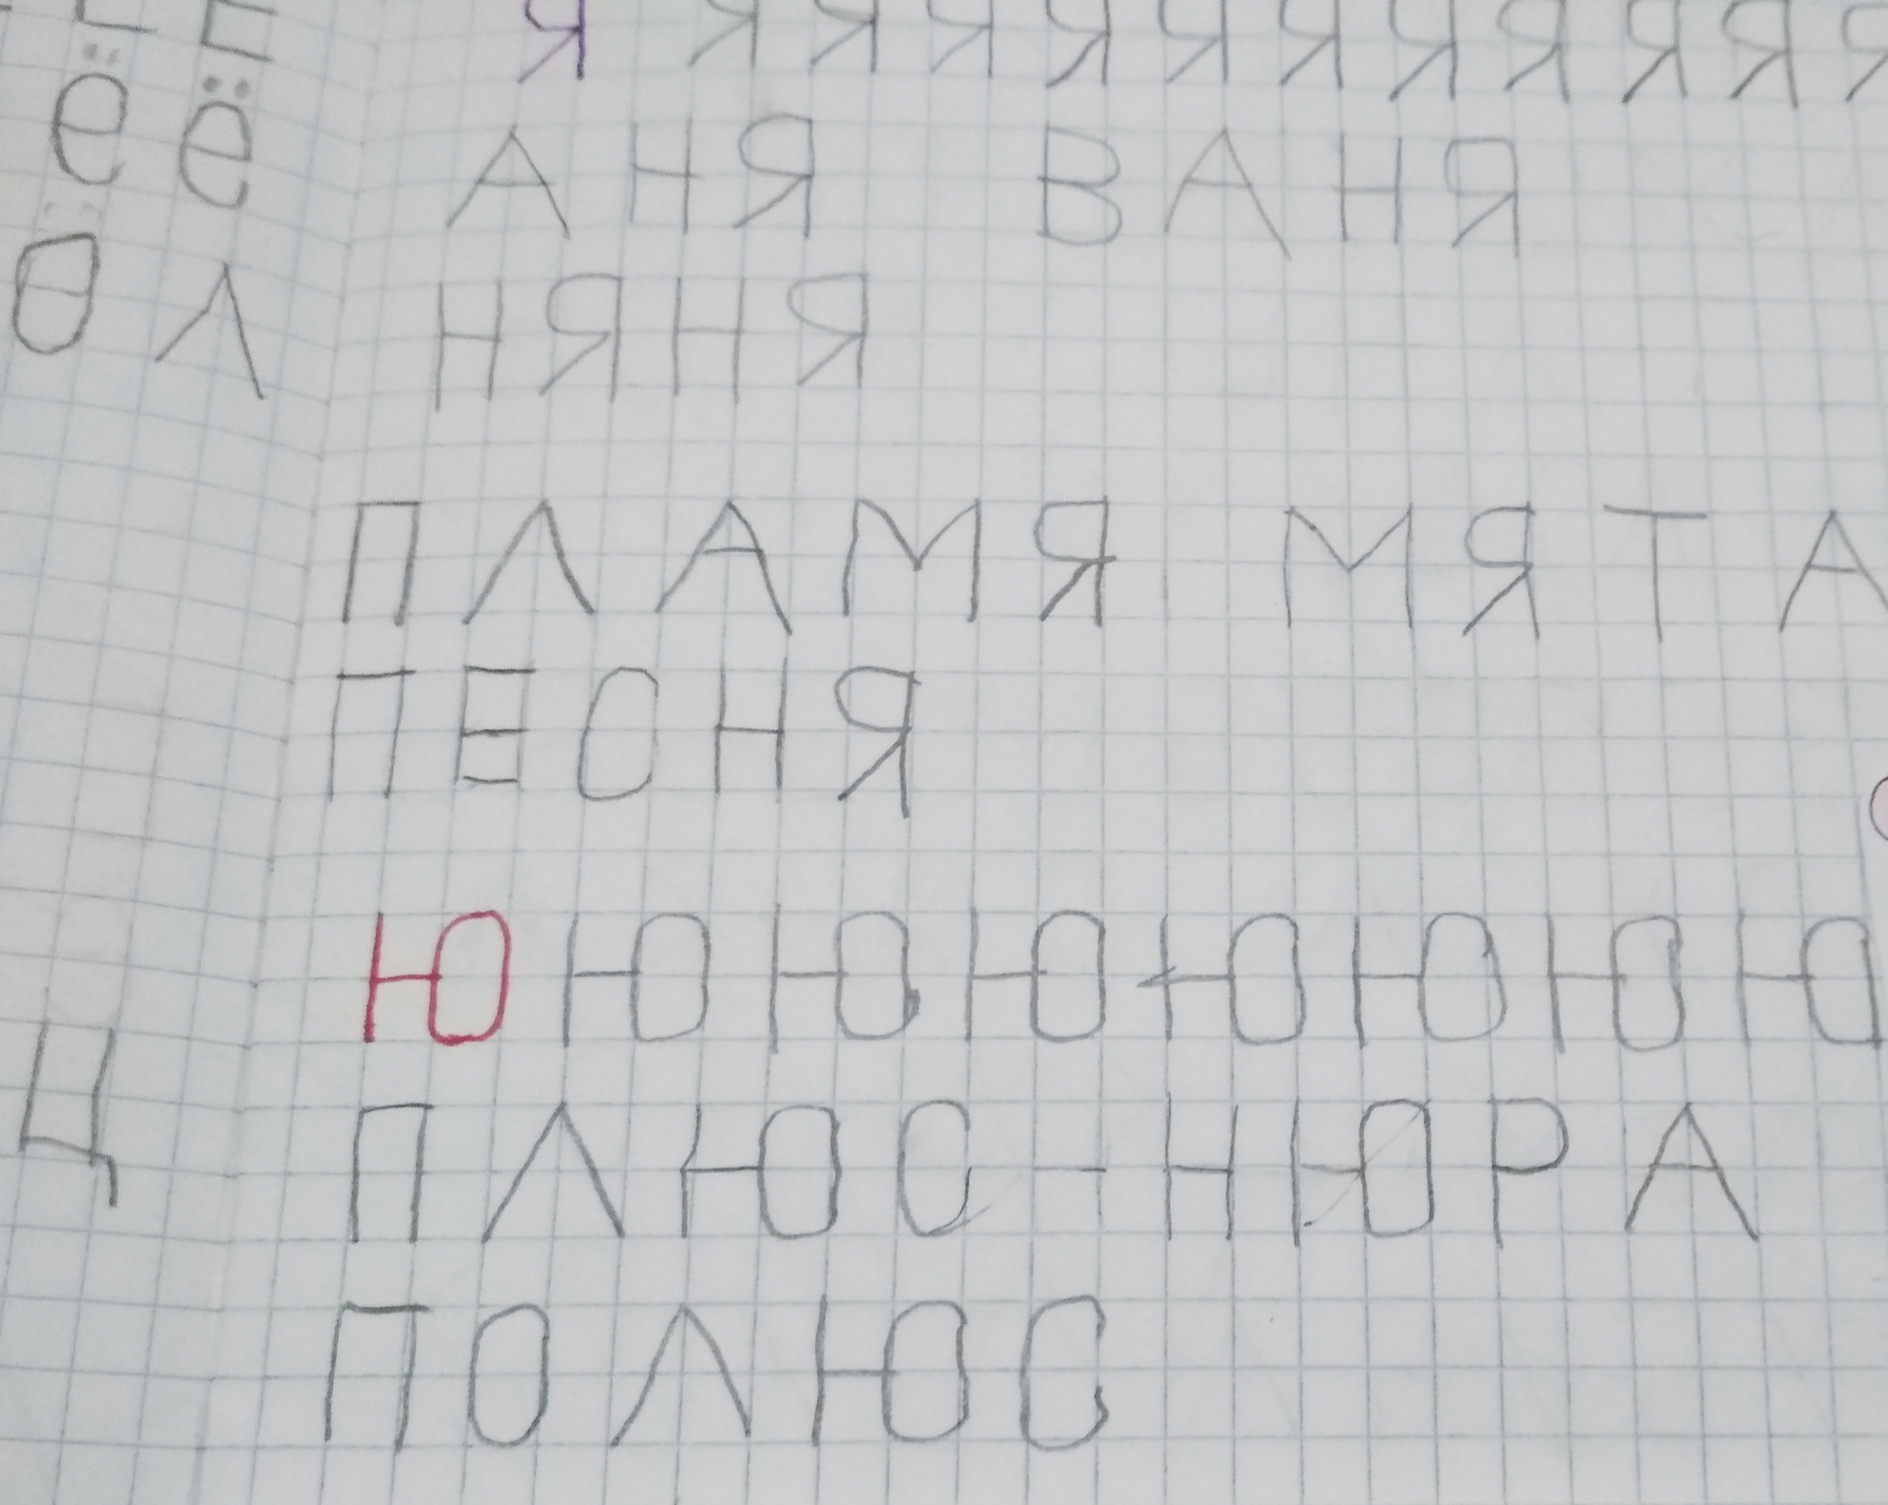 Я Я Я Я Я Я Я Я Я Я Я Я
АНЯ ВАНЯ
НЯНЯ
ПЛАМЯ МЯТА
ПЕСНЯ
Ю Ю Ю Ю Ю Ю Ю Ю
ПЛЮС - НЮРА
ПОЛЮС
ё ё
Л
Ц